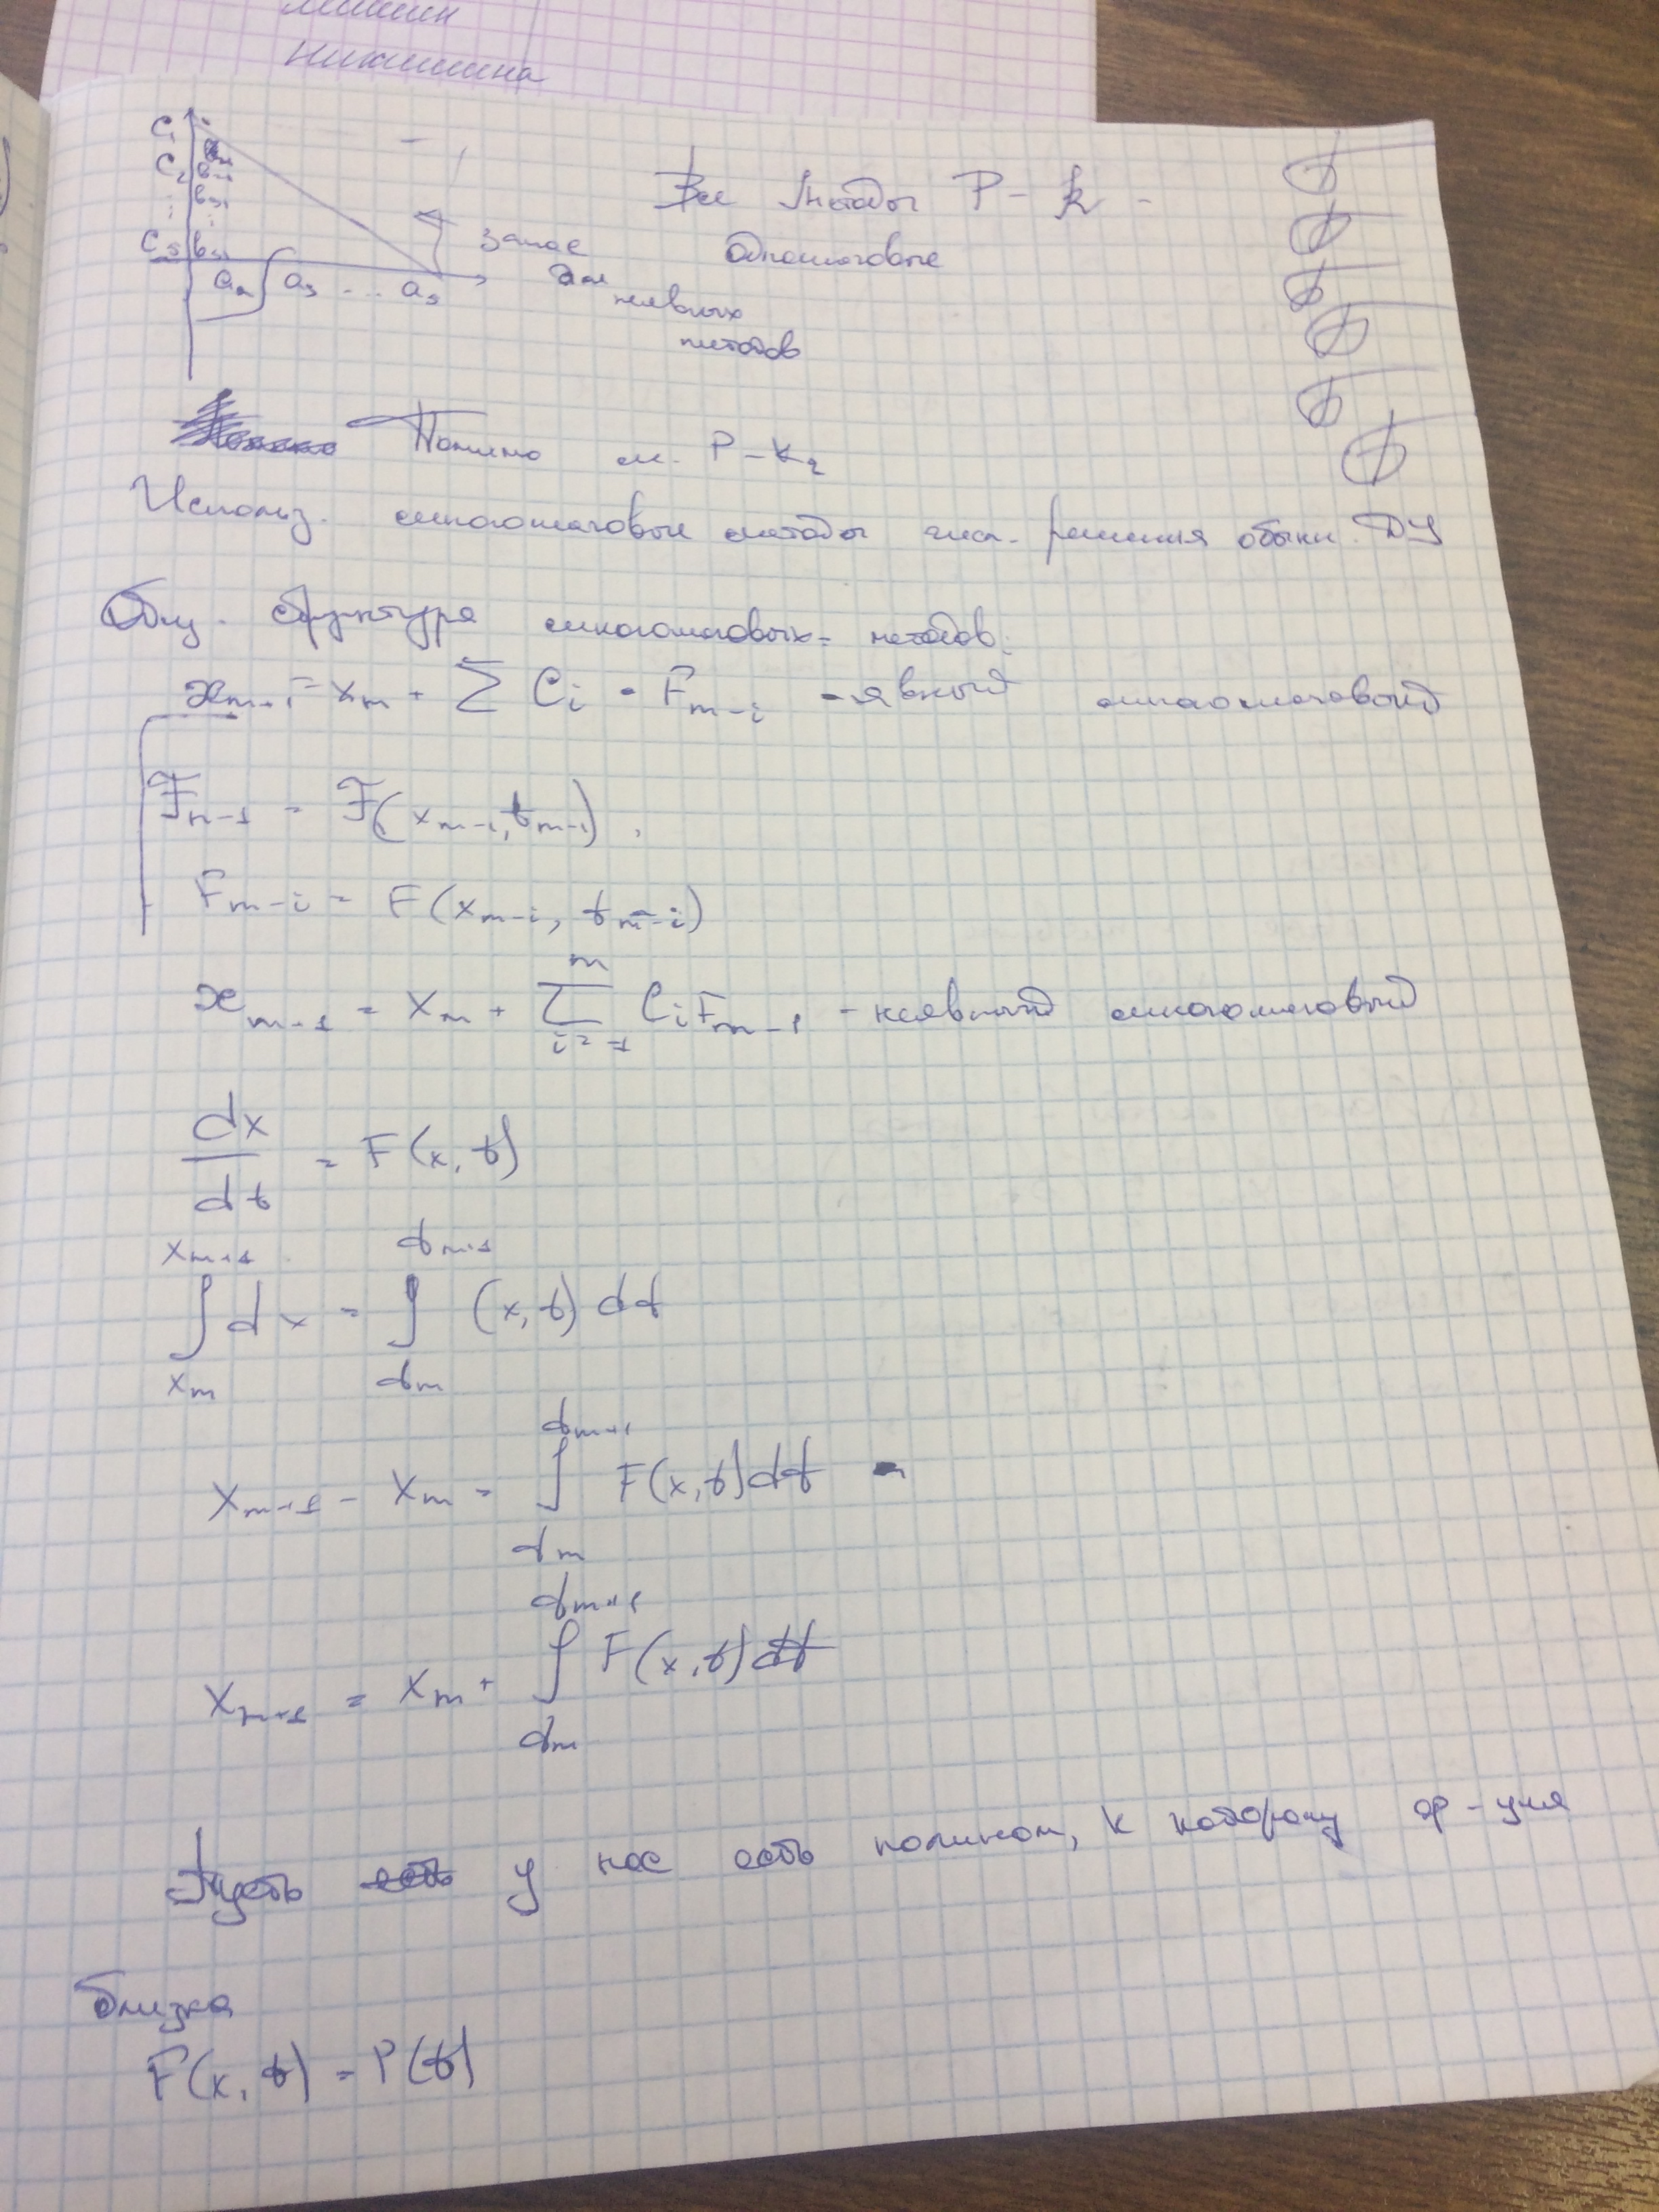 Никишина
C₁
C₂ b₂₁
⋮ b₃₁
Cₛ bₛ₁
a₂ a₃ ... aₛ
запас
для
неявных
методов
Все методы Р-К -
одношаговые
Помимо м. Р-К₂
Использ. многошаговые методы числ. решения обыкн. ДУ
Общ. структура многошаговых методов:
x_{m+1} = x_m + Σ C_i · F_{m-i} - явный многошаговый
F_{n-1} = F(x_{m-1}, t_{m-1}),
F_{m-i} = F(x_{m-i}, t_{m-i})
x_{m+1} = x_m + Σ_{i=-1}^{m} C_i F_{m-1} - неявный многошаговый
dx/dt = F(x, t)
∫_{x_m}^{x_{m+1}} dx = ∫_{t_m}^{t_{m+1}} (x, t) dt
x_{m+1} - x_m = ∫_{t_m}^{t_{m+1}} F(x, t) dt
x_{m+1} = x_m + ∫_{t_m}^{t_{m+1}} F(x, t) dt
Пусть есть у нас есть полином, к которому ф-уия
близка
F(x, t) = P(t)